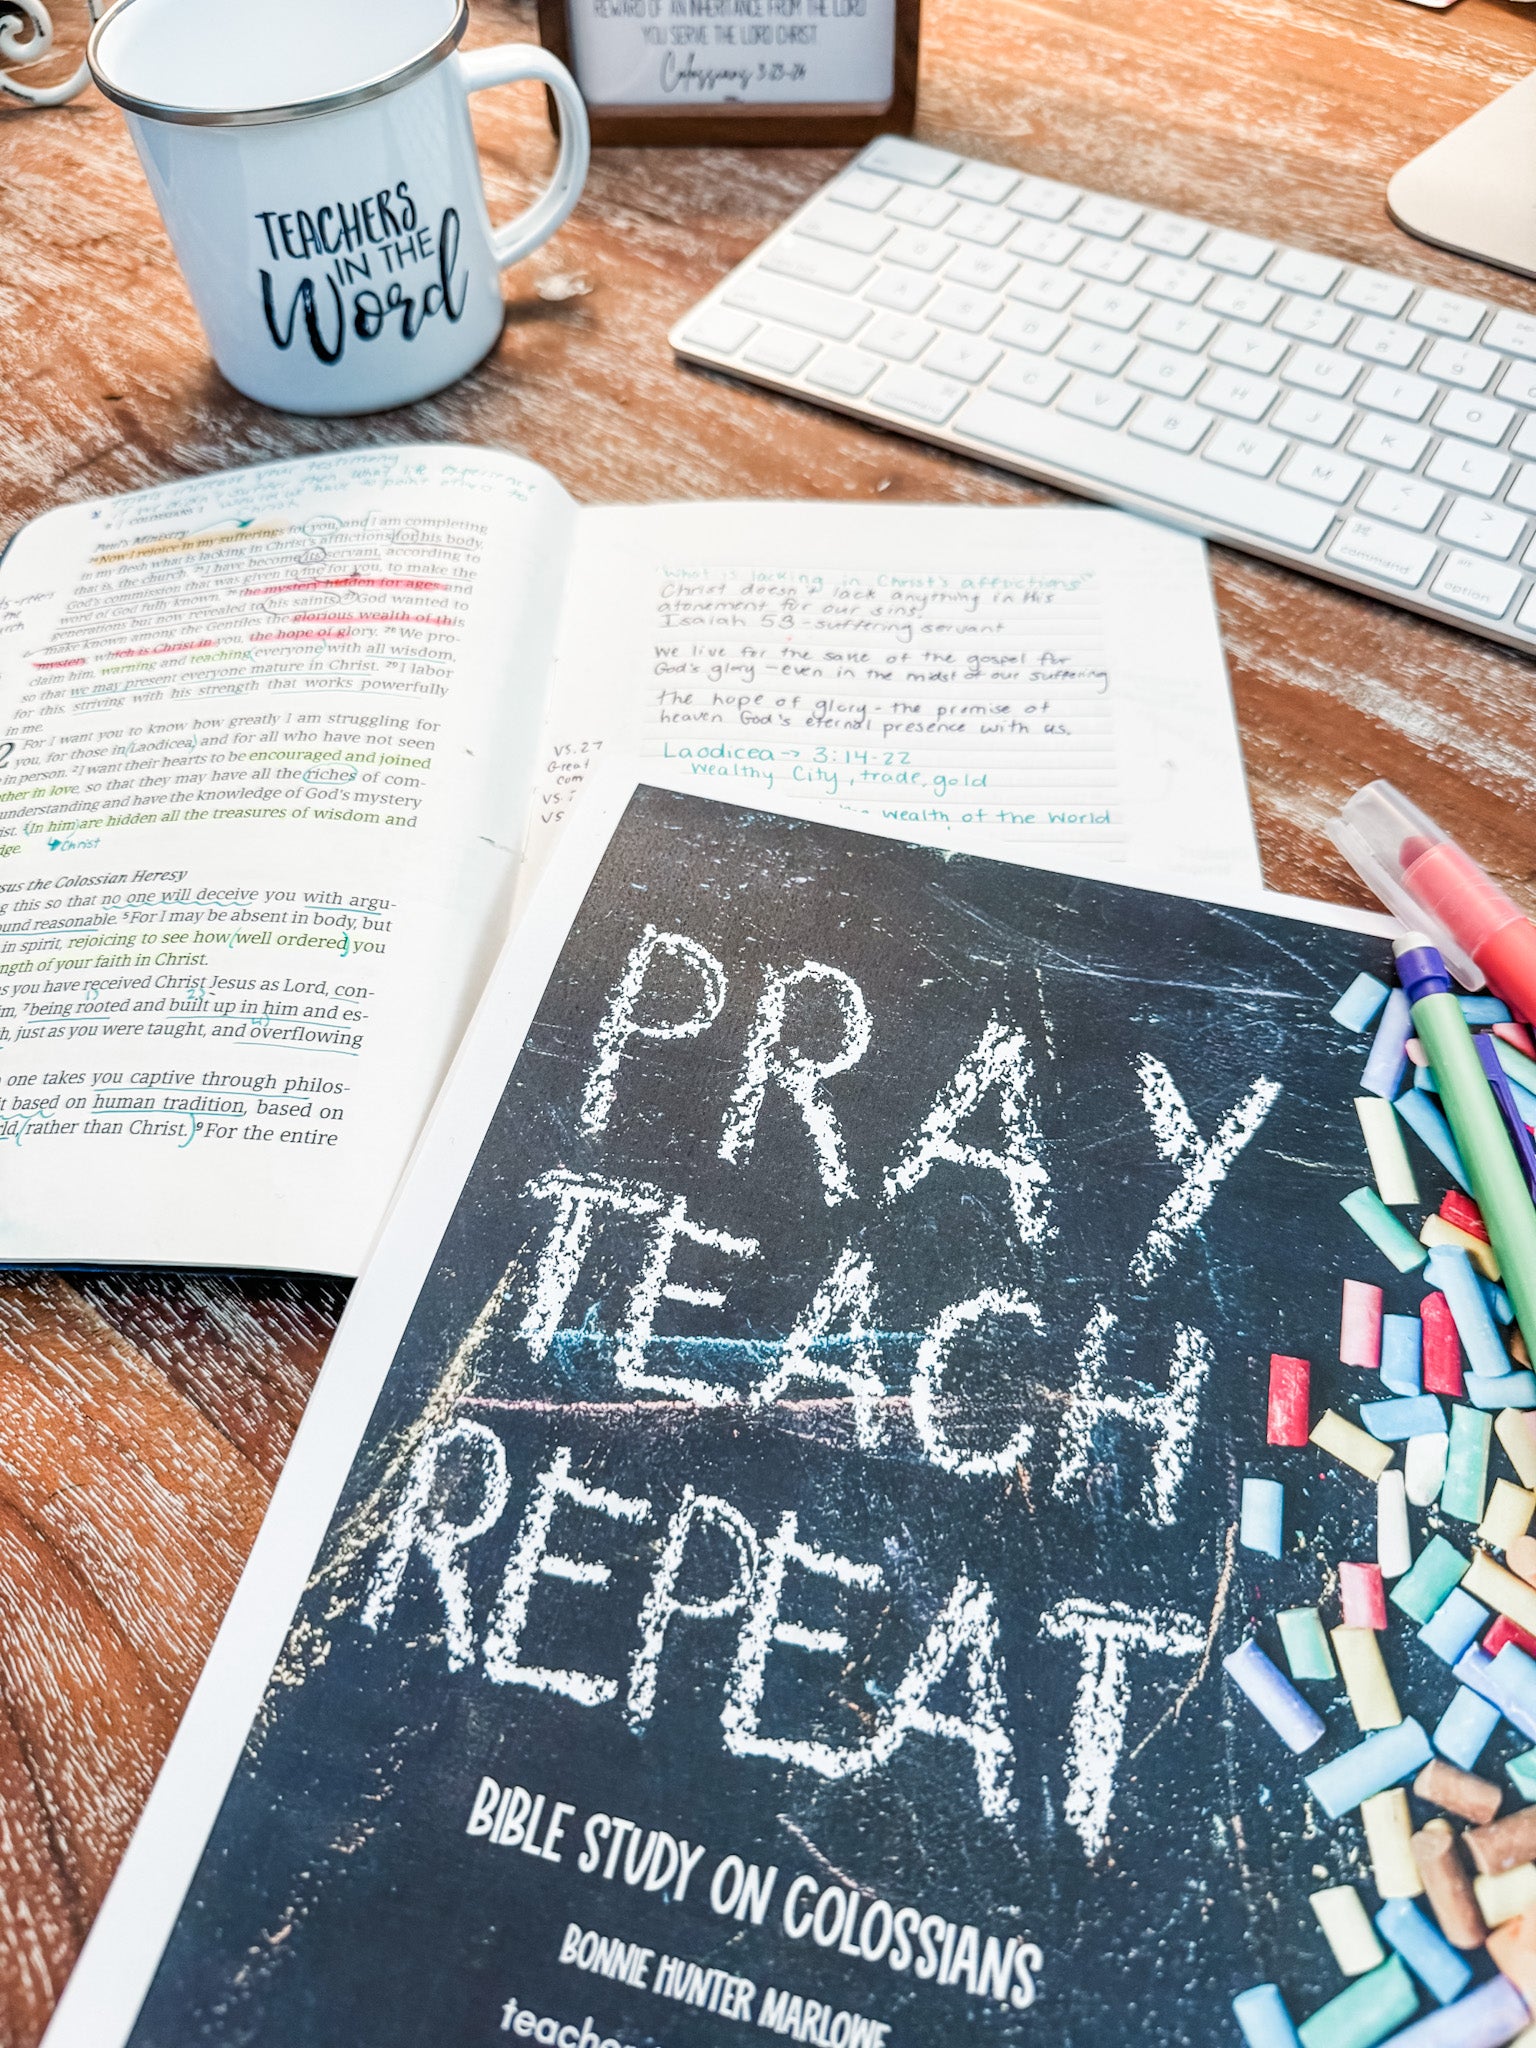 REWARD OF AN INHERITANCE FROM THE LORD
YOU SERVE THE LORD CHRIST
Colossians 3:23-24
TEACHERS
IN THE
Word
command
command
option
COLOSSIANS 1
Christ
Paul's Ministry
24 Now I rejoice in my sufferings for you, and I am completing
in my flesh what is lacking in Christ's afflictions for his body,
that is, the church. 25 I have become its servant, according to
God's commission that was given to me for you, to make the
word of God fully known, 26 the mystery hidden for ages and
generations but now revealed to his saints. 27 God wanted to
make known among the Gentiles the glorious wealth of this
mystery, which is Christ in you, the hope of glory. 28 We pro-
claim him, warning and teaching everyone with all wisdom,
so that we may present everyone mature in Christ. 29 I labor
for this, striving with his strength that works powerfully
in me.
2 For I want you to know how greatly I am struggling for
you, for those in Laodicea, and for all who have not seen
in person. 2 I want their hearts to be encouraged and joined
ther in love, so that they may have all the riches of com-
understanding and have the knowledge of God's mystery
ist. 3 In him are hidden all the treasures of wisdom and
dge.
Christ
sus the Colossian Heresy
g this so that no one will deceive you with argu-
ound reasonable. 5 For I may be absent in body, but
in spirit, rejoicing to see how well ordered you
ngth of your faith in Christ.
s you have received Christ Jesus as Lord, con-
im, 7 being rooted and built up in him and es-
h, just as you were taught, and overflowing
one takes you captive through philos-
it based on human tradition, based on
rld, rather than Christ. 9 For the entire
"What is lacking in Christ's afflictions"
Christ doesn't lack anything in his
atonement for our sins.
Isaiah 53 - suffering servant
We live for the sake of the gospel for
God's glory - even in the midst of our suffering
the hope of glory - the promise of
heaven God's eternal presence with us.
Laodicea → 3:14-22
wealthy City, trade, gold
wealth of the World
VS. 27
Great
com
VS.
VS
PRAY
TEACH
REPEAT
BIBLE STUDY ON COLOSSIANS
BONNIE HUNTER MARLOWE
teache